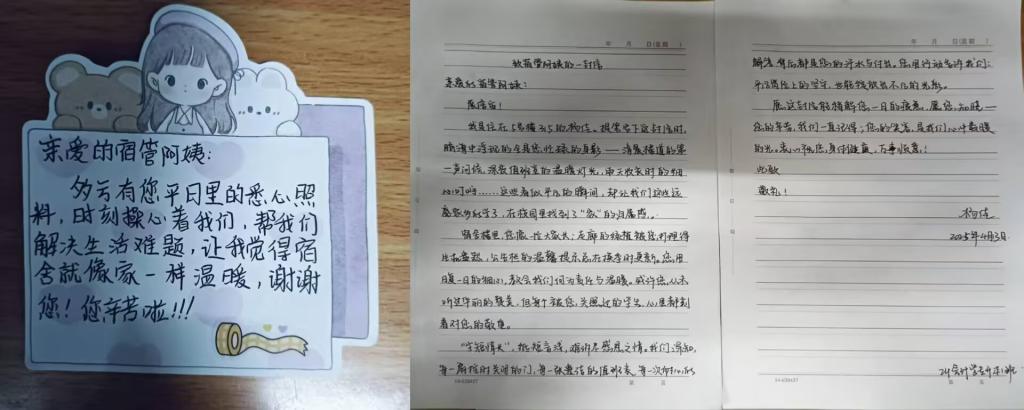 亲爱的宿管阿姨:
多亏有您平日里的悉心照
料,时刻操心着我们,帮我们
解决生活难题,让我觉得宿
舍就像家一样温暖,谢谢
您!您辛苦啦!!!
年 月 日(星期 )
致宿管阿姨的一封信
亲爱的宿管阿姨:
展信安!
我是住在5号楼315的杨佳。提笔写下这封信时,
脑海中浮现的全是您忙碌的身影——清晨楼道的第
一声问候,深夜值班室的温暖灯光,雨天收衣时的细
心叮咛……这些看似平凡的瞬间,却让我们这些远
离家乡的学子,在校园里找到了“家”的归属感。
宿舍楼里,您像一位大家长:走廊的绿植被您打理得
生机盎然,公告栏的温馨提示总在换季时更新。您用
日复一日的细心,教会我们何为责任与温暖。或许您从未
听过华丽的赞美,但每个被您关照过的学生,心里都刻
着对您的敬意。
“字短情长”,纸短言浅,难诉尽感恩之情。我们深知,
每一扇按时关闭的门,每一张整洁的值班表,每一次
第 页
年 月 日(星期 )
背后都是您的汗水与付出。您用行动告诉我们:
平凡岗位上的坚守,也能绽放出不凡的光彩。
愿这封信能捎解您一日的疲惫,愿您知晓——
您的辛劳,我们一直记得;您的笑容,是我们心中最暖
的光。衷心祝您,身体健康,万事顺意!
此致
敬礼!
杨佳
2025年4月3日
第 页